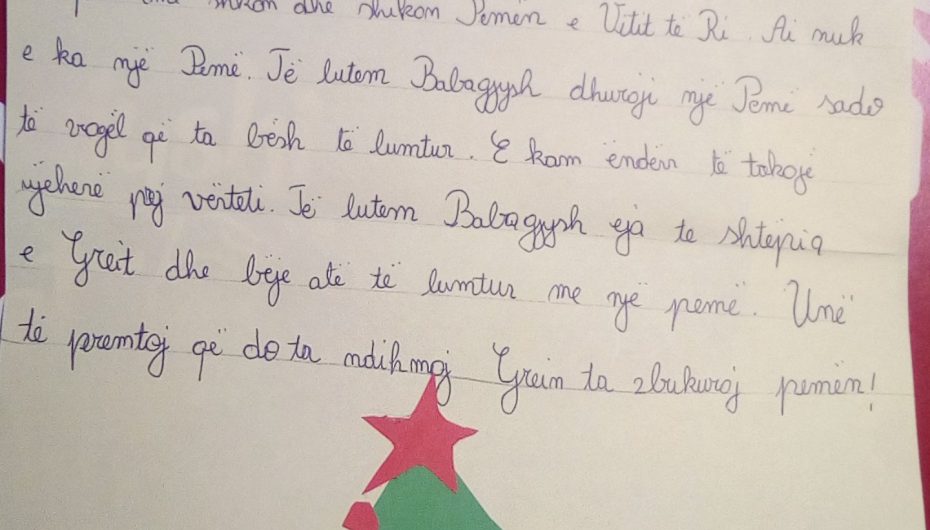 shkon dhe shikon Pemën e Vitit të Ri. Ai nuk
e ka një Pemë. Të lutem Babagjysh dhuroji një Pemë sado
të vogël që ta bësh të lumtur. E kam ëndërr të takoje
njëherë për vërteti. Të lutem Babagjysh eja te shtëpia
e Greit dhe bëje atë të lumtur me një pemë. Unë
të premtoj që do ta ndihmoj Grein ta zbukuroj pemën!